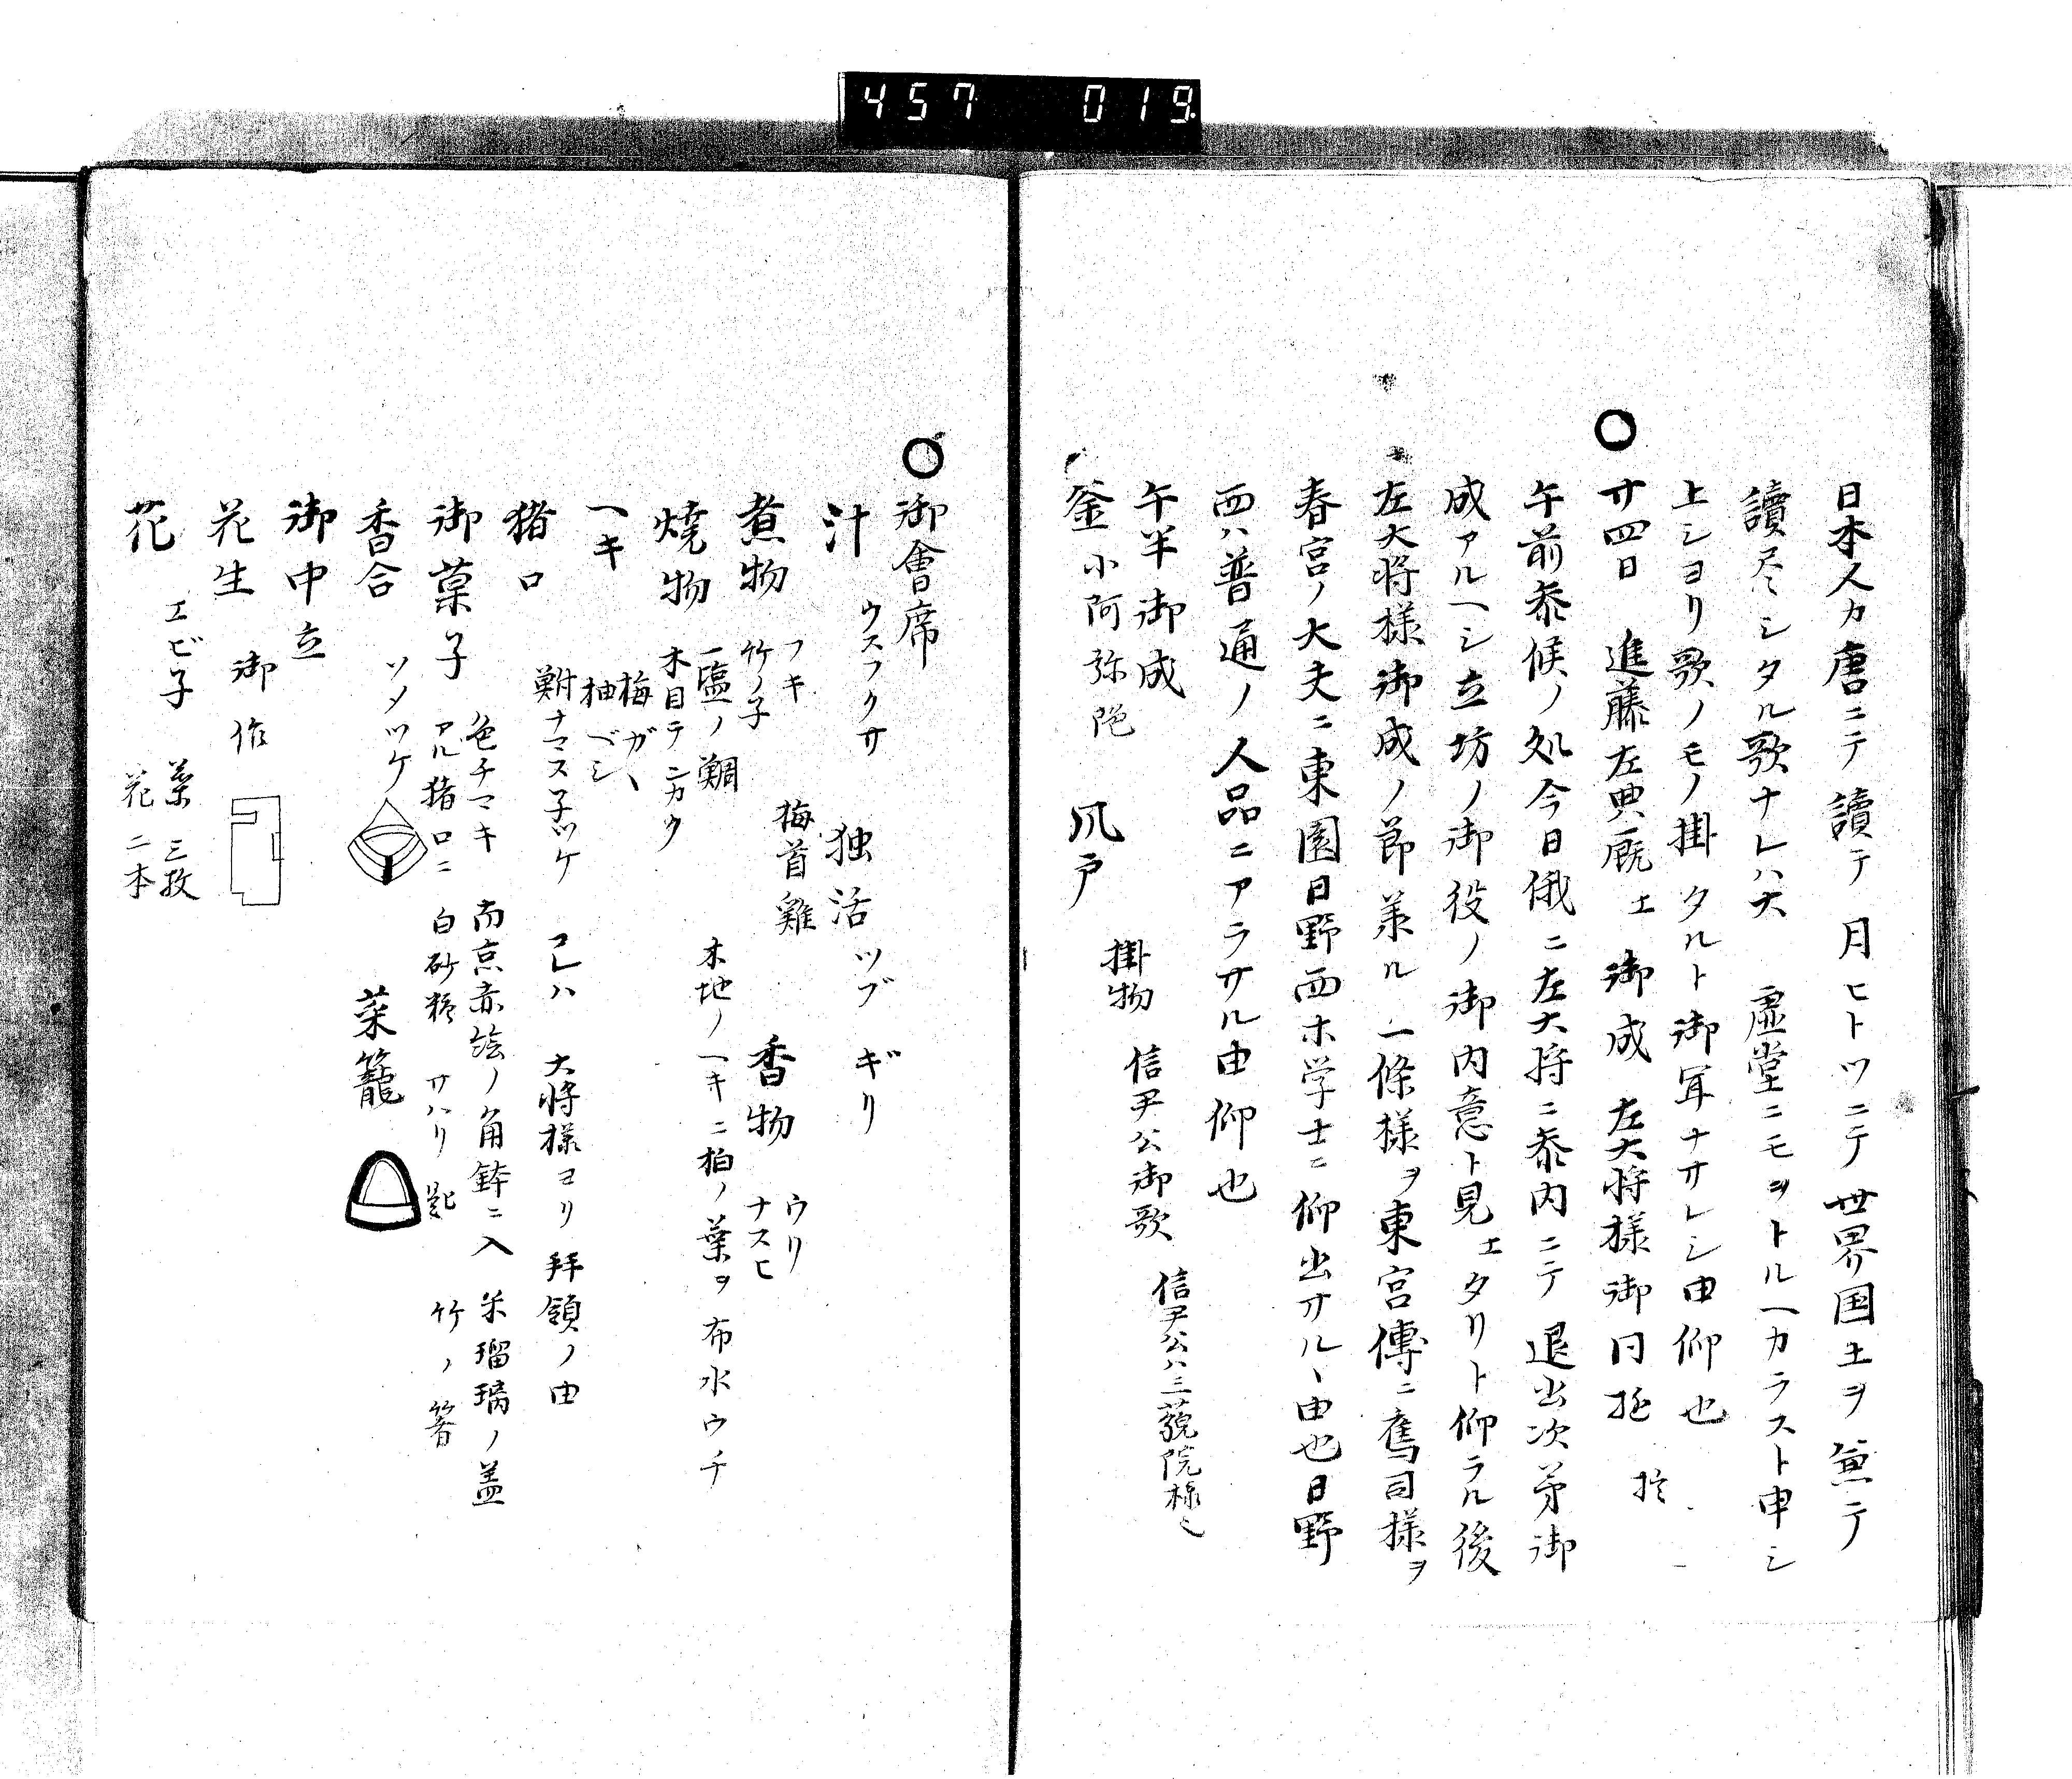 457 019
日本人カ唐ニテ讀テ月ヒトツニテ世界国土ヲ兼テ
讀尽シタル歌ナレハ大虚堂ニモヲトルヘカラスト申シ
上シヨリ歌ノモノ掛タルト御耳ナサレシ由仰也
廿四日 進藤左典厩エ御成 左大将様御同
午前参候ノ処今日俄ニ左大将ニ参内ニテ退出次第御
成アルヘシ立坊ノ御役ノ御内意ト見エタリト仰ラル後
左大将様御成ノ節兼ル一條様ヲ東宮傳ニ鷹司様ヲ
春宮ノ大夫ニ東園日野西ホ学士ニ仰出サルヽ由也日野
西ハ普通ノ人品ニアラサル由仰也
午半御成
釜 小阿弥陀 風戸 掛物 信尹公御歌 信尹公ハ三藐院様也
御會席
汁 ウスフクサ 独活 ツブギリ
煮物 フキ 竹ノ子 梅首雞 香物 ウリ ナスヒ
焼物 一塩ノ鯛 木目テンカク 木地ノヘキニ柏ノ葉ヲ布水ウチ
ヘキ 梅ガヽ 柚ベシ
猪口 鮒ナマス子ツケ コレハ大将様ヨリ拝領ノ由
御菓子 色チマキ 南京赤絵ノ角鉢ニ入 朱瑠璃ノ盖
アル猪口ニ 白砂糖 サハリ匙 竹ノ箸
香合 ソメツケ 菜籠
御中立
花生 御作
花 エビ子 葉三枚 花二本